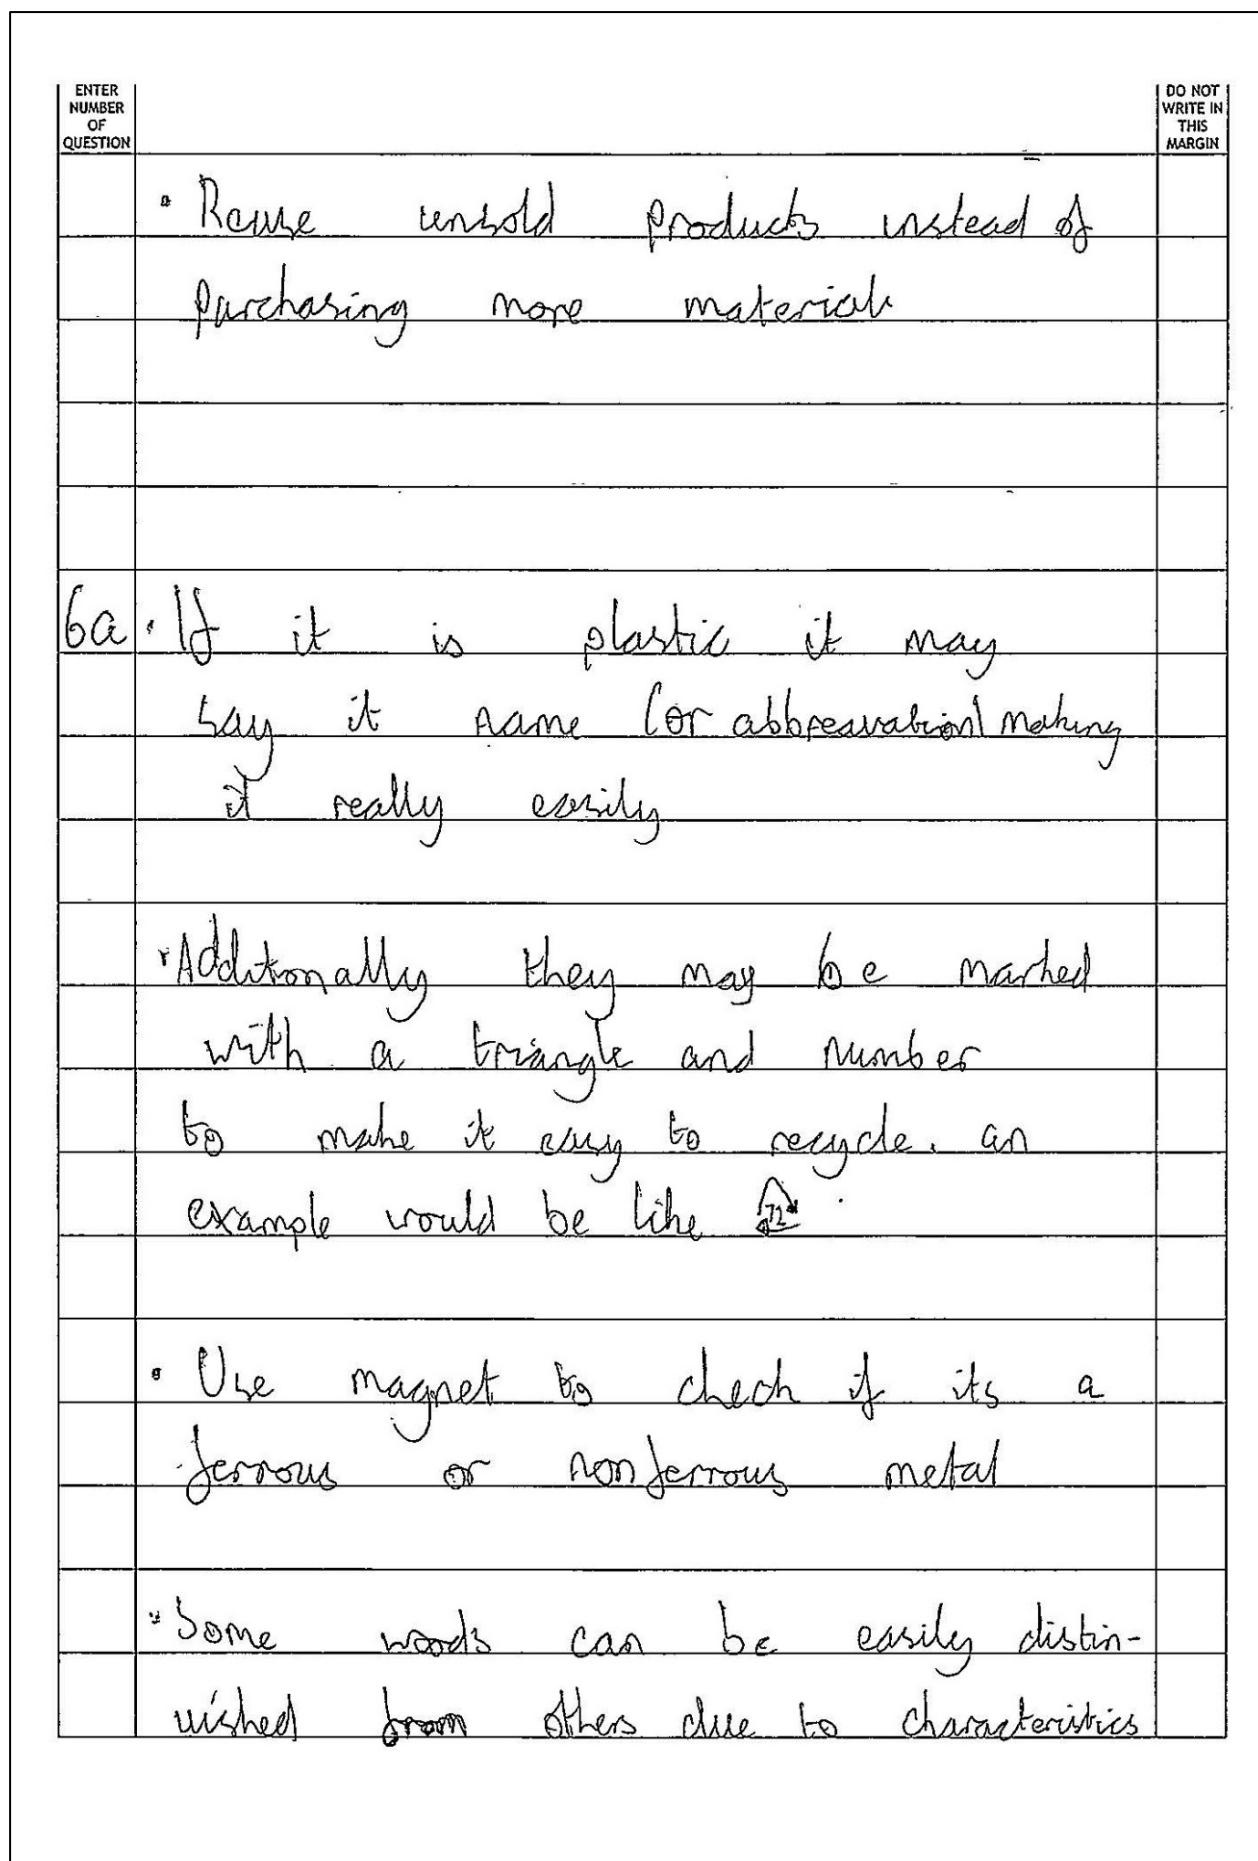 ENTER
NUMBER
OF
QUESTION
DO NOT
WRITE IN
THIS
MARGIN
• Reuse unsold products instead of
purchasing more materials
6a • If it is plastic it may
say it name (or abbreavation) making
it really easily
• Additionally they may be marked
with a triangle and number
to make it easy to recycle. an
example would be like 72
• Use magnet to check if its a
ferrous or nonferrous metal
• Some woods can be easily distin-
uished from others due to characteristics